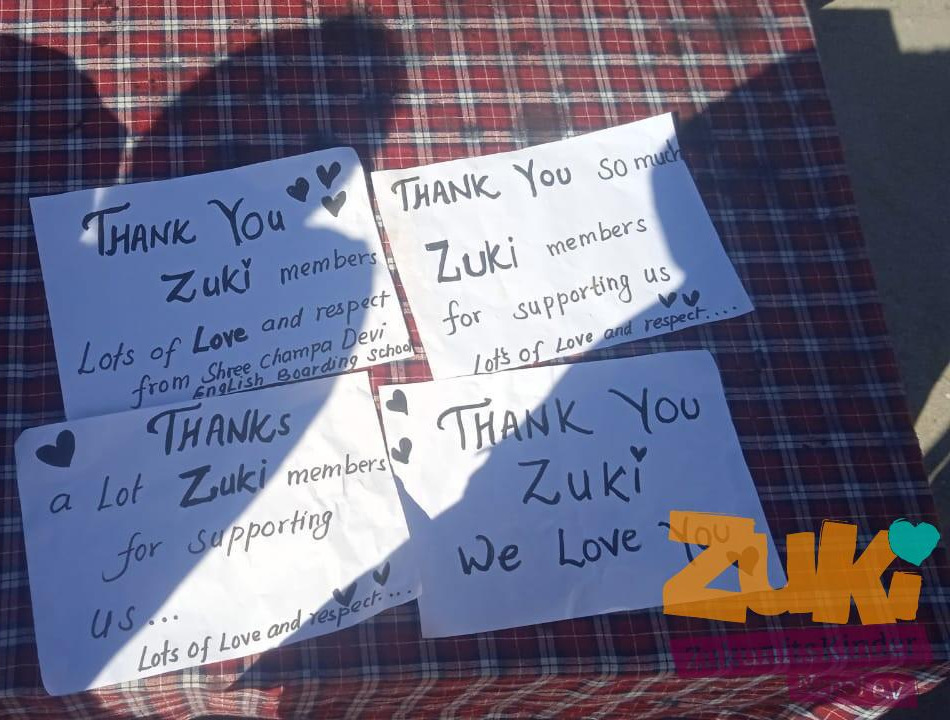 THANK YOU
Zuki members
Lots of Love and respect
from Shree Champa Devi
English Boarding School
THANK YOU so much
Zuki members
for supporting us
Lot's of Love and respect....
THANKS
a Lot Zuki members
for supporting
us...
Lots of Love and respect....
THANK YOU
Zuki
We Love You
ZUKi
ZukunftsKinder
Nepal e.V.